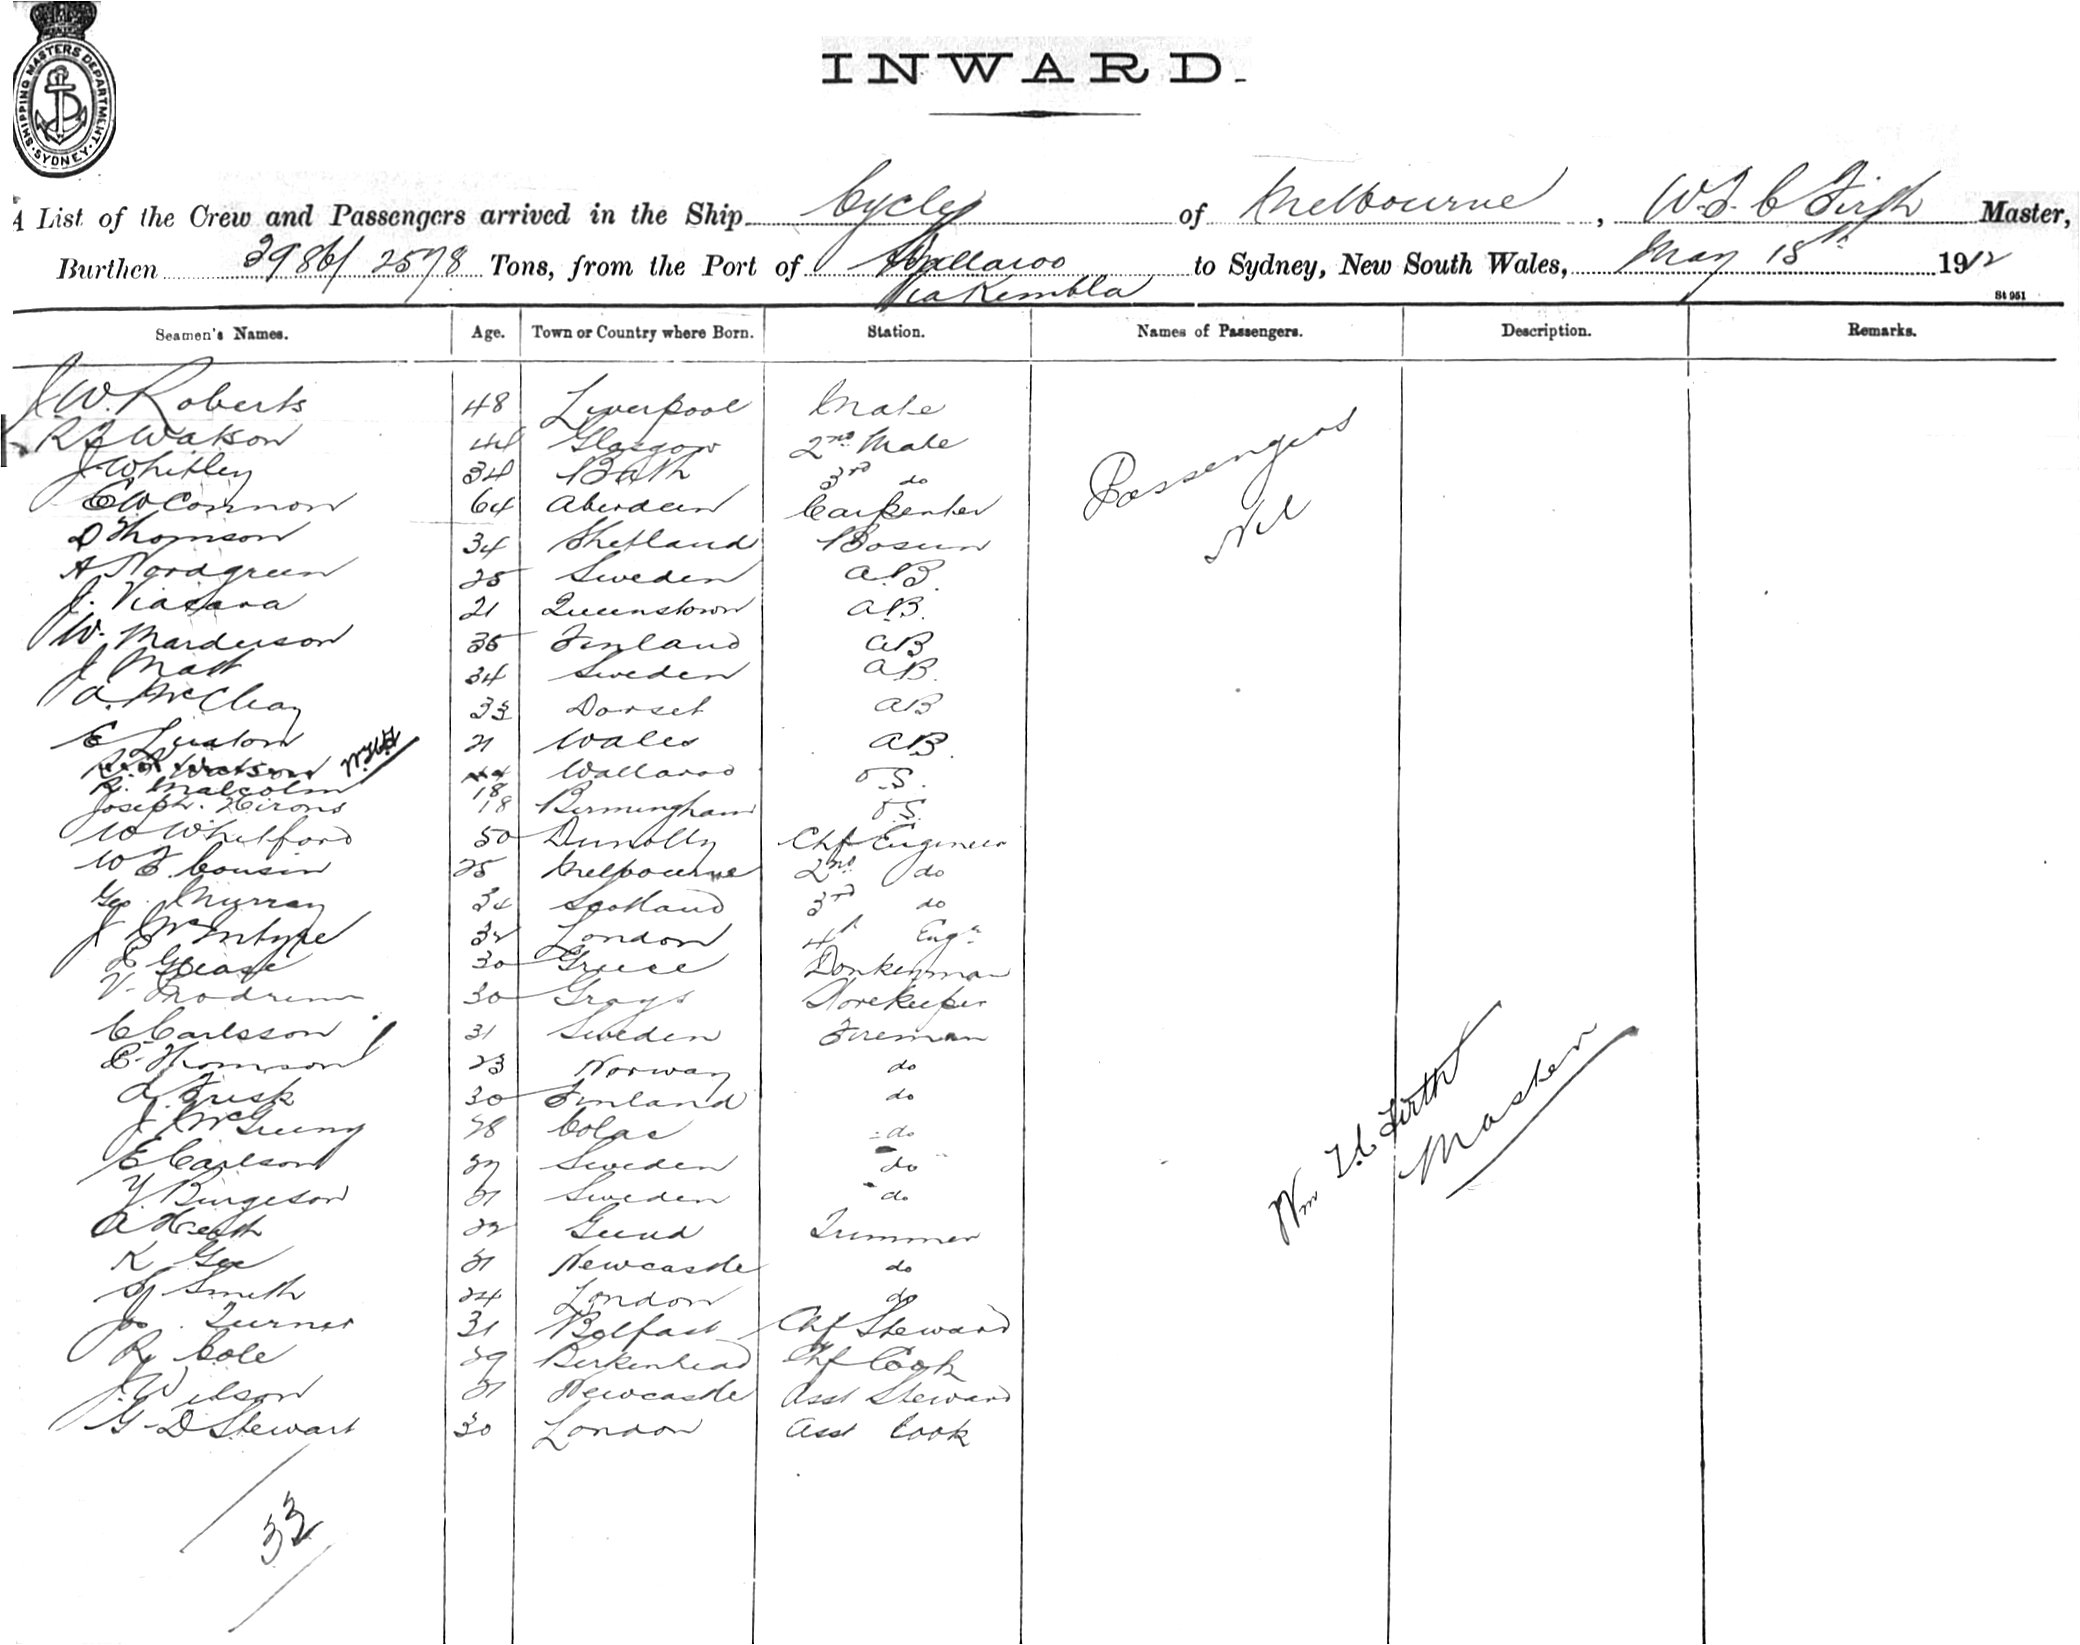 SHIPPING MASTERS DEPARTMENT
SYDNEY
INWARD.
A List of the Crew and Passengers arrived in the Ship Cycle of Melbourne, W.F.C Firth Master,
Burthen 3986/2578 Tons, from the Port of Wallaroo to Sydney, New South Wales, May 18th 1912
Via Kembla
St 951
Seamen's Names. Age. Town or Country where Born. Station. Names of Passengers. Description. Remarks.
J.W. Roberts 48 Liverpool Mate
R Watson 44 Glasgow 2nd Mate
J Whitley 34 Bath 3rd do
E W Connon 64 Aberdeen Carpenter
Passengers
Nil
D Thomson 34 Shetland Bosun
A Nordgreen 25 Sweden A.B.
J. 21 Queenstown A.B.
W. Marderson 35 Finland AB
J Matt 34 Sweden A.B.
A. McCleay 33 Dorset AB
E Luxton 21 Wales AB.
R Watson
R. Malcolm 18 Wallaroo O.S.
Joseph Hirons 18 Birmingham O.S.
W Whitford 50 Dunolly Chf Engineer
W F. Cousin 25 Melbourne 2nd do
Geo. Murray 34 Scotland 3rd do
J McIntyre 32 London 4th Engr
30 Greece Donkeyman
V. 30 Grays Storekeeper
C. Carlsson 31 Sweden Fireman
E. Thomson 23 Norway do
A. Frisk 30 Finland do
J McGreeny 28 Colac do
E Carlson 27 Sweden do
Y. Birgeson 21 Sweden do
A 22 Trimmer
K Gee 21 Newcastle do
Smith 24 London do
Jas. Turner 31 Belfast Chf Steward
R Cole 29 Birkenhead Chf Cook
J. Wilson 21 Newcastle Asst Steward
G D Stewart 30 London Asst Cook
Wm F.C. Firth
Master
33